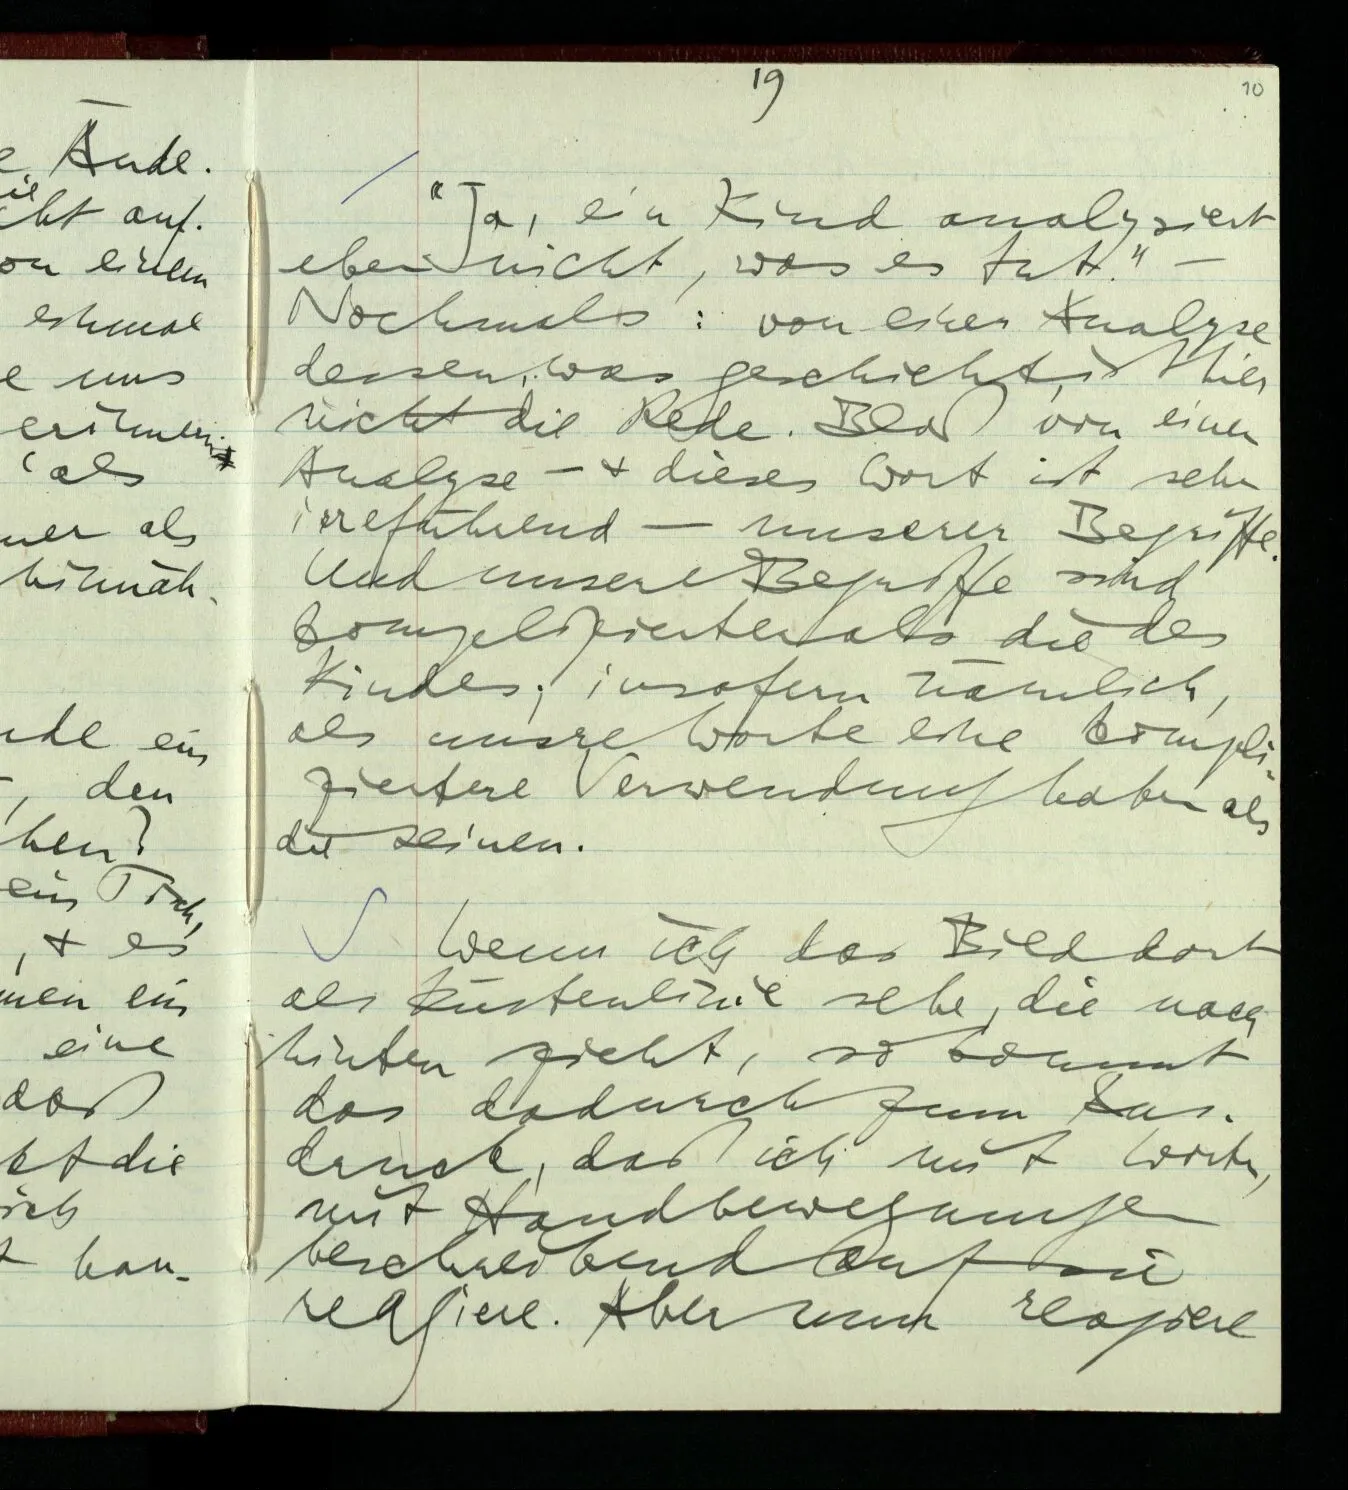 Ände.
cht auf.
on einem
eihmal
e uns
als
mer als
ein
, den
ben?
ein Tisch,
, & es
men ein
eine
daß
die
ich
19
10
"Ja, ein Kind analysiert
eben nicht, was es tut." –
Nochmals: von einer Analyse
dessen, was geschieht, ist hier
nicht die Rede. Bloß von einer
Analyse – & dieses Wort ist sehr
irreführend – unserer Begriffe.
Und unsere Begriffe sind
komplizierter als die des
Kindes; insofern nämlich,
als unsre Worte eine kompli-
ziertere Verwendung haben als
die seinen.
Wenn ich das Bild dort
als Küstenlinie sehe, die nach
hinten zieht, so kommt
das dadurch zum Aus-
druck, daß ich mit Worten,
mit Handbewegungen
beschreibend auf sie
reagiere. Aber nun reagiere